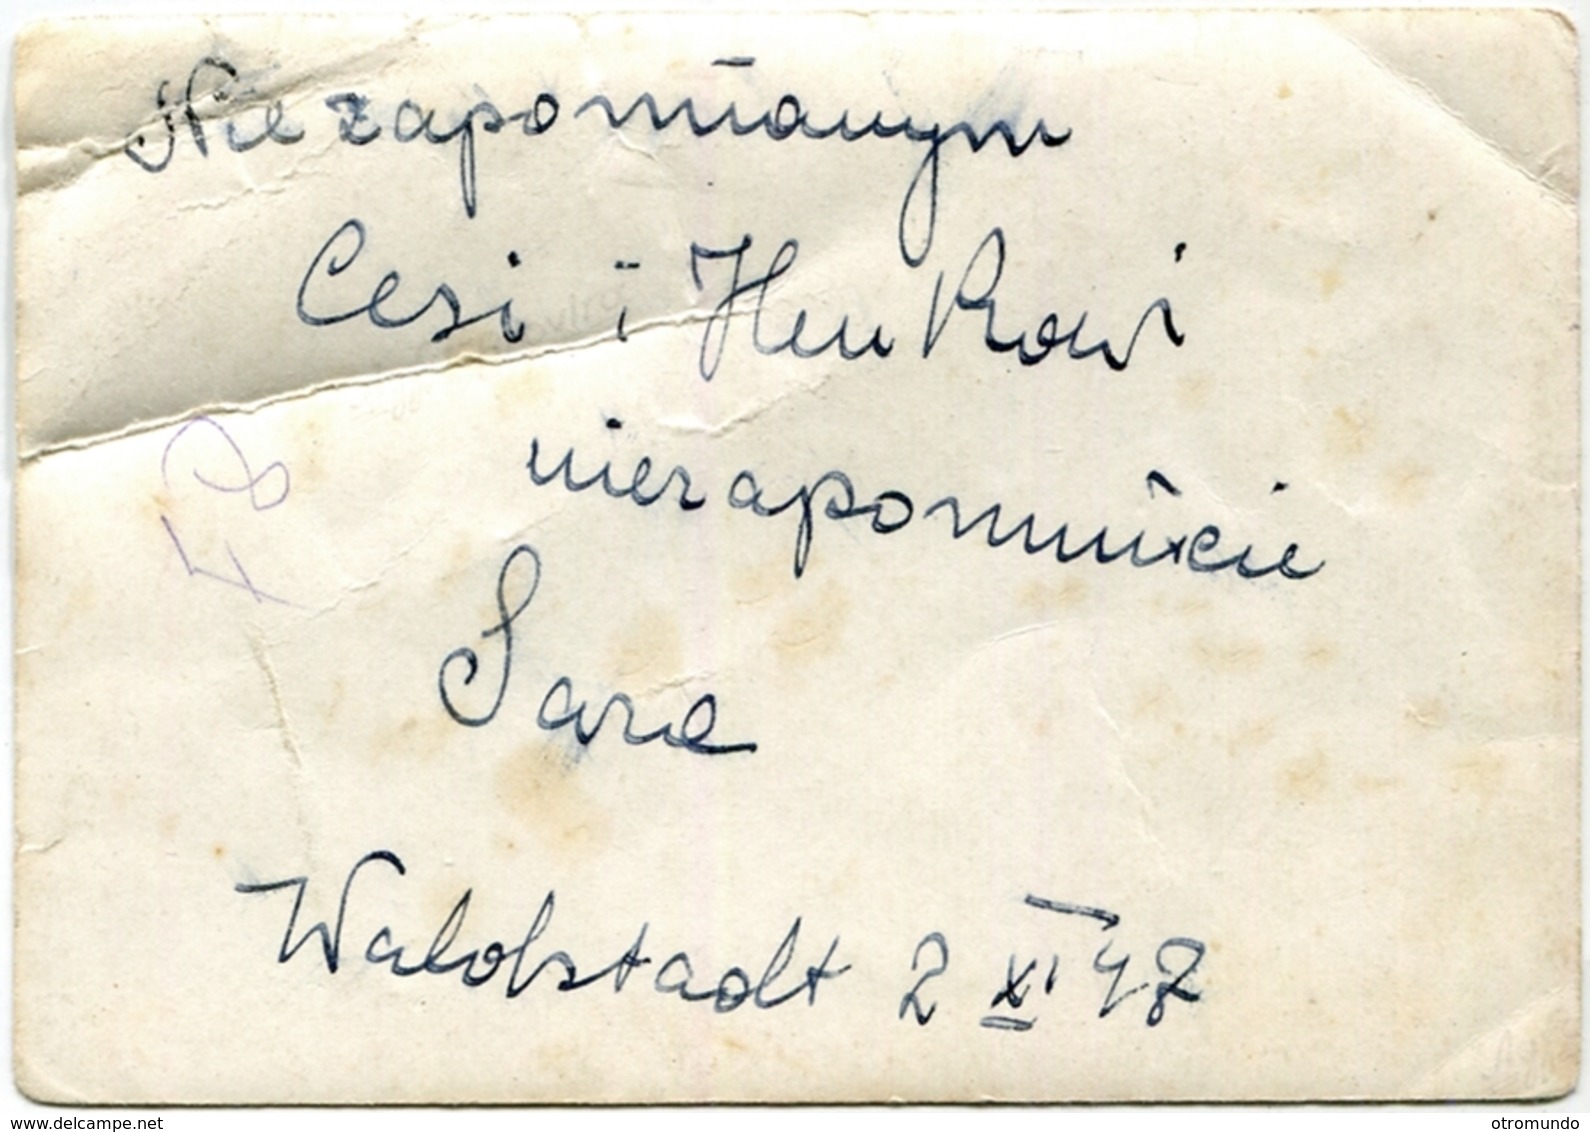 Niezapomianym
Cesi i Henkowi
niezapomńcie
Sare
Waldstadt 2 XI 47
www.delcampe.net
otromundo